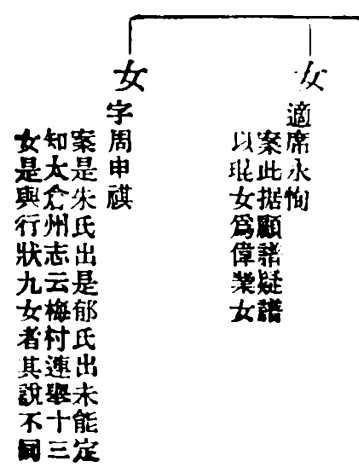 女
適席永恂
案此据顧譜疑譜
以琨女爲偉業女
女
字周申祺
案是朱氏出是郁氏出未能定
知太仓州志云梅村連舉十三
女是與行狀九女者其說不同